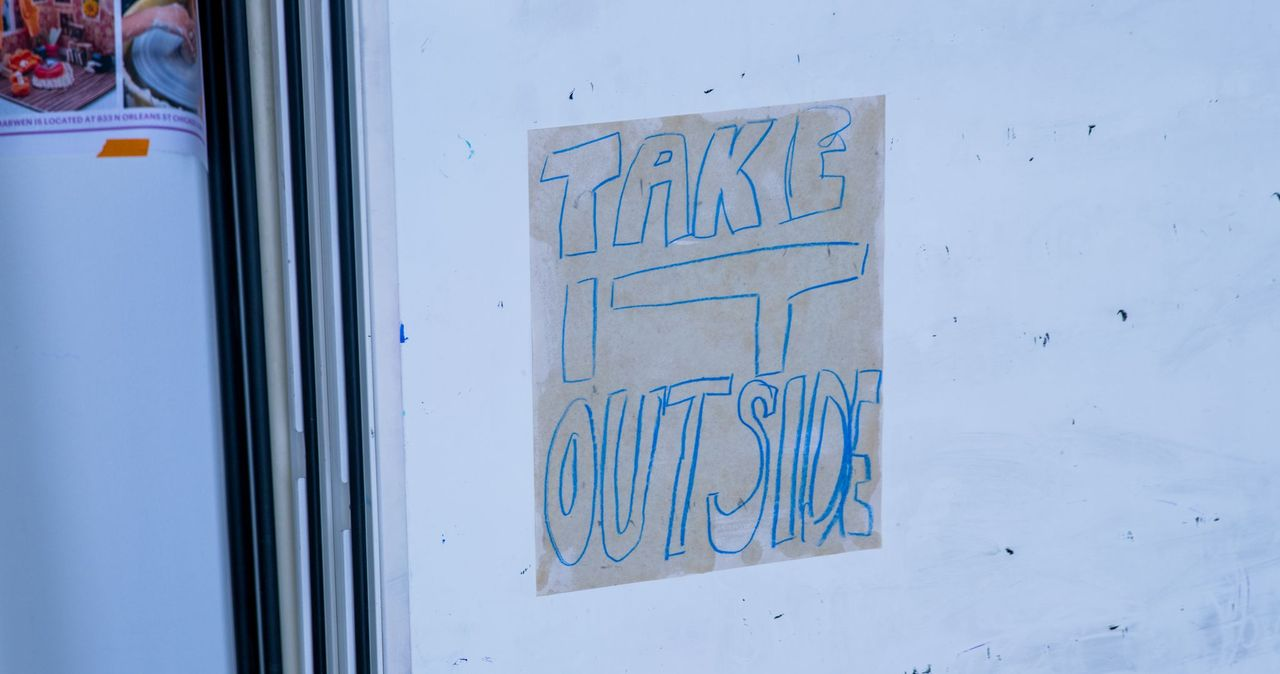 DARWEN IS LOCATED AT 833 N ORLEANS ST CHICAG
TAKE
IT
OUTSIDE